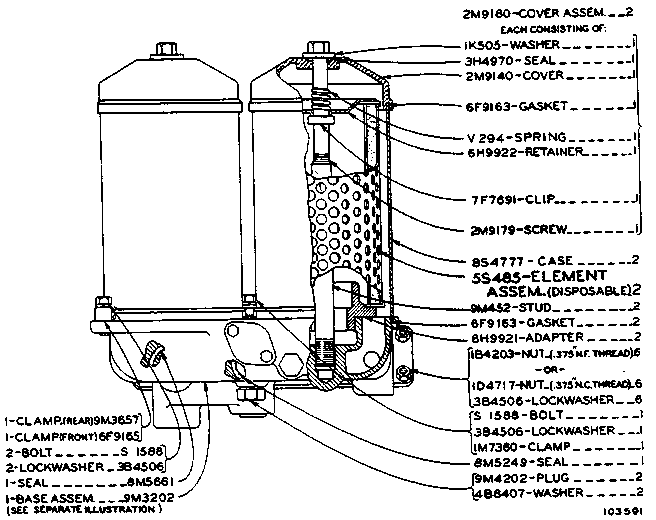 2M9180-COVER ASSEM.__2
EACH CONSISTING OF:
1K505-WASHER________1
3H4970-SEAL_________1
2M9140-COVER________1
6F9163-GASKET_______1
V 294-SPRING________1
6H9922-RETAINER_____1
7F7691-CLIP_________1
2M9179-SCREW________1
8S4777-CASE_________2
5S485-ELEMENT
ASSEM.(DISPOSABLE)2
9M452-STUD__________2
6F9163-GASKET_______2
6H9921-ADAPTER______2
1B4203-NUT_(.375"N.F. THREAD)6
-OR-
1D4717-NUT_(.375"N.C. THREAD)_6
3B4506-LOCKWASHER___6
S 1588-BOLT_________1
3B4506-LOCKWASHER___1
1M7380-CLAMP________1
8M5249-SEAL_________1
9M4202-PLUG_________2
4B8407-WASHER_______2
1-CLAMP(REAR)9M3657
1-CLAMP(FRONT)6F9165
2-BOLT_____S 1588
2-LOCKWASHER__3B4506
1-SEAL_____8M5661
1-BASE ASSEM.___9M3202
(SEE SEPARATE ILLUSTRATION)
103591